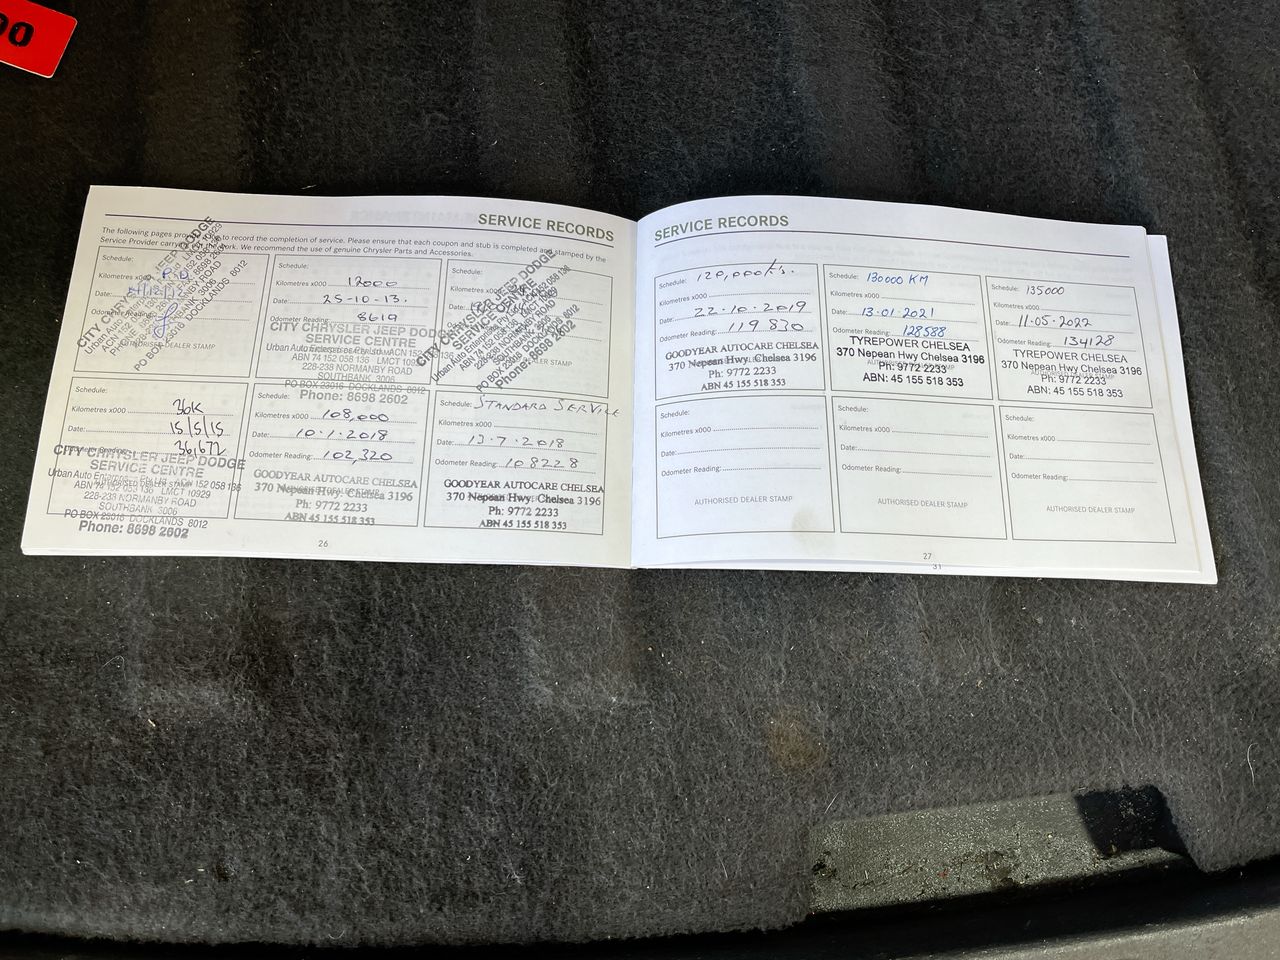 00
SERVICE RECORDS
The following pages to record the completion of service. Please ensure that each coupon and stub is completed and stamped by the
Service Provider We recommend the use of genuine Chrysler Parts and Accessories.
Schedule:
Kilometres x000
Date:
Odometer Reading:
AUTHORISED DEALER STAMP
PO BOX 23016 DOCKLANDS 8012
Schedule:
Kilometres x000 12000
Date: 25-10-13.
8619
CITY CHRYSLER JEEP DODGE
SERVICE CENTRE
Urban Auto ACN 152 058 136
ABN 74 152 058 136 LMCT 10929
228-238 NORMANBY ROAD
SOUTHBANK 3006
PO BOX 23016 DOCKLANDS 8012
Phone: 8698 2602
Schedule:
CITY CHRYSLER JEEP DODGE
SERVICE CENTRE
PO BOX 23016 DOCKLANDS 8012
Phone: 8698 2602
Schedule:
Kilometres x000 36K
Date: 15/5/15
Odometer Reading: 36,672
CITY CHRYSLER JEEP DODGE
SERVICE CENTRE
Urban Auto ACN 152 058 136
ABN 74 152 058 136 LMCT 10929
228-238 NORMANBY ROAD
SOUTHBANK 3006
PO BOX 23016 DOCKLANDS 8012
Phone: 8698 2602
Schedule:
Kilometres x000 108,000
Date: 10-1-2018
Odometer Reading: 102,320
GOODYEAR AUTOCARE CHELSEA
370 Nepean Hwy. Chelsea 3196
Ph: 9772 2233
ABN 45 155 518 353
Schedule: STANDARD SERVICE
Kilometres x000
Date: 13-7-2018
Odometer Reading: 108228
GOODYEAR AUTOCARE CHELSEA
370 Nepean Hwy. Chelsea 3196
Ph: 9772 2233
ABN 45 155 518 353
26
SERVICE RECORDS
Schedule: 120,000
Kilometres x000
Date: 22-10-2019
Odometer Reading: 119830
GOODYEAR AUTOCARE CHELSEA
370 Nepean Hwy. Chelsea 3196
Ph: 9772 2233
ABN 45 155 518 353
Schedule: 130000 KM
Kilometres x000
Date: 13-01-2021
Odometer Reading: 128588
TYREPOWER CHELSEA
370 Nepean Hwy Chelsea 3196
Ph: 9772 2233
ABN: 45 155 518 353
Schedule: 135000
Kilometres x000
Date: 11-05-2022
Odometer Reading: 134128
TYREPOWER CHELSEA
370 Nepean Hwy Chelsea 3196
Ph: 9772 2233
ABN: 45 155 518 353
Schedule:
Kilometres x000
Date:
Odometer Reading:
AUTHORISED DEALER STAMP
Schedule:
Kilometres x000
Date:
Odometer Reading:
AUTHORISED DEALER STAMP
Schedule:
Kilometres x000
Date:
Odometer Reading:
AUTHORISED DEALER STAMP
27
31